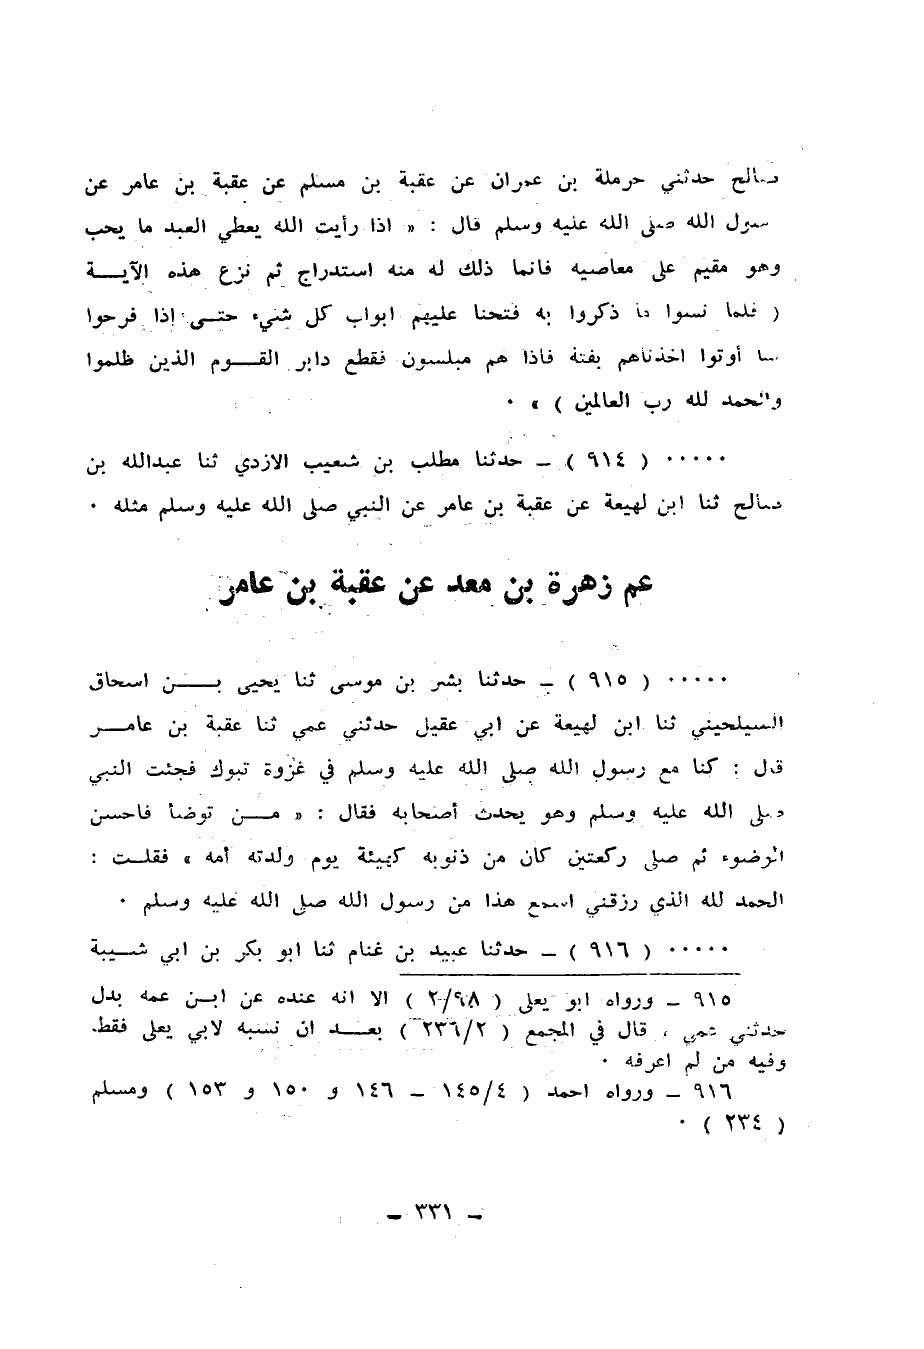 صالح حدثني حرملة بن عمران عن عقبة بن مسلم عن عقبة بن عامر عن
سول الله صلى الله عليه وسلم قال : « اذا رأيت الله يعطي العبد ما يحب
وهو مقيم على معاصيه فانما ذلك له منه استدراج ثم نزع هذه الآيــة
( فلما نسوا ما ذكروا به فتحنا عليهم ابواب كل شيء حتــى إذا فرحوا
بما أوتوا اخذناهم بغتة فاذا هم مبلسون فقطع دابر القــوم الذين ظلموا
والحمد لله رب العالمين ) » ·
····· ( ٩١٤ ) ــ حدثنا مطلب بن شعيب الازدي ثنا عبدالله بن
صالح ثنا ابن لهيعة عن عقبة بن عامر عن النبي صلى الله عليه وسلم مثله ·
عم زهرة بن معد عن عقبة بن عامر
····· ( ٩١٥ ) ــ حدثنا بشر بن موسى ثنا يحيى بــن اسحاق
السيلحيني ثنا ابن لهيعة عن ابي عقيل حدثني عمي ثنا عقبة بن عامــر
قال : كنا مع رسول الله صلى الله عليه وسلم في غزوة تبوك فجئت النبي
صلى الله عليه وسلم وهو يحدث أصحابه فقال : « مــن توضأ فاحسن
الوضوء ثم صلى ركعتين كان من ذنوبه كهيئة يوم ولدته أمه » فقلــت :
الحمد لله الذي رزقني اسمع هذا من رسول الله صلى الله عليه وسلم ·
····· ( ٩١٦ ) ــ حدثنا عبيد بن غنام ثنا ابو بكر بن ابي شــيبة
٩١٥ ــ ورواه ابو يعلى ( ٢/٩٨ ) الا انه عنده عن ابــن عمه بدل
حدثني عمي ، قال في المجمع ( ٢٣٦/٢ ) بعــد ان نسبه لابي يعلى فقط.
وفيه من لم اعرفه ·
٩١٦ ــ ورواه احمد ( ١٤٥/٤ ــ ١٤٦ و ١٥٠ و ١٥٣ ) ومسلم
( ٢٣٤ ) ·
ــ ٣٣١ ــ